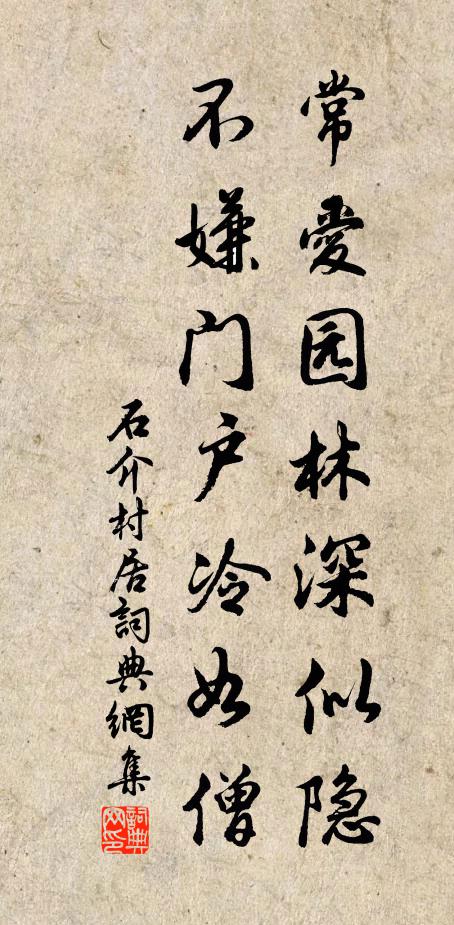 常爱园林深似隐
不嫌门户冷如僧
石介村居詞典網集
詞典网印